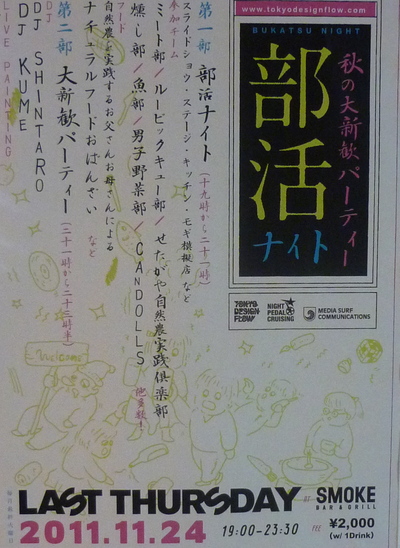 www.tokyodesignflow.com
BUKATSU NIGHT
秋の大新歓パーティー
部活
ナイト
TOKYO DESIGN FLOW
NIGHT PEDAL CRUISING
MEDIA SURF COMMUNICATIONS
第一部 部活ナイト (十九時から二十一時)
スライドショウ・ステージ・キッチン・モギ模擬店 など
参加チーム
ミート部/ルービックキュー部/せたがや自然農実践倶楽部
燻し部/魚部/男子野菜部/CANDOLLS 他多数!
フード
自然農を実践するお父さんお母さんによる
ナチュラルフードおばんざい など
第二部 大新歓パーティー (二十一時から二十三時半)
DJ
DJ SHINTARO
DJ KUME
LIVE PAINTING
Welcome
LAST THURSDAY AT SMOKE
BAR & GRILL
2011.11.24 19:00-23:30 FEE ¥2,000
(w/ 1Drink)